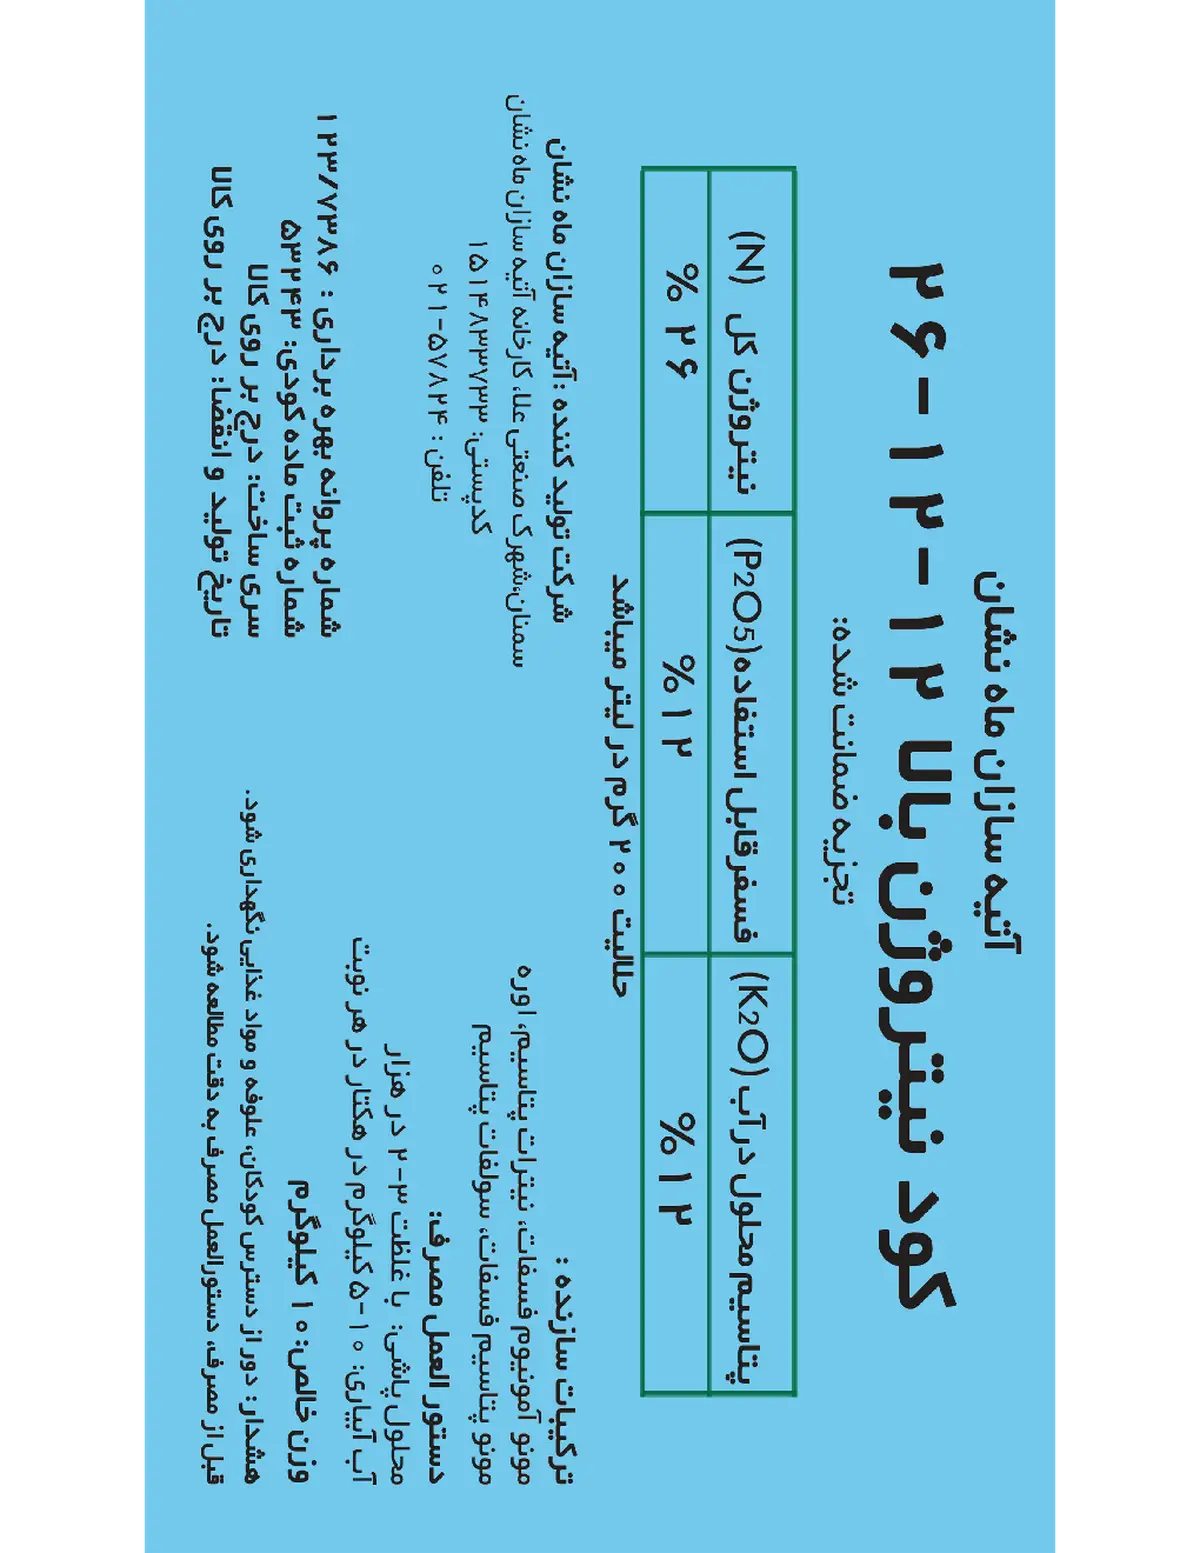 آتیه سازان ماه نشان
کود نیتروژن بالا ۱۲-۱۲-۲۶
تجزیه ضمانت شده:
پتاسیم محلول درآب (K2O) فسفرقابل استفاده(P2O5) نیتروژن کل (N)
%۱۲ %۱۲ %۲۶
حلالیت ۲۰۰ گرم در لیتر میباشد
ترکیبات سازنده :
مونو آمونیوم فسفات، نیترات پتاسیم، اوره
مونو پتاسیم فسفات، سولفات پتاسیم
دستور العمل مصرف:
محلول پاشی: با غلظت ۳-۲ در هزار
آب آبیاری: ۱۰-۵ کیلوگرم در هکتار در هر نوبت
وزن خالص: ۱۰ کیلوگرم
هشدار: دور از دسترس کودکان، علوفه و مواد غذایی نگهداری شود.
قبل از مصرف، دستورالعمل مصرف به دقت مطالعه شود.
شرکت تولید کننده : آتیه سازان ماه نشان
سمنان،شهرک صنعتی علا، کارخانه آتیه سازان ماه نشان
کدپستی: ۱۵۱۴۸۳۳۷۳۳
تلفن : ۵۷۸۲۴-۰۲۱
شماره پروانه بهره برداری : ۱۲۳/۷۳۸۶
شماره ثبت ماده کودی: ۵۳۲۴۳
سری ساخت: درج بر روی کالا
تاریخ تولید و انقضا: درج بر روی کالا